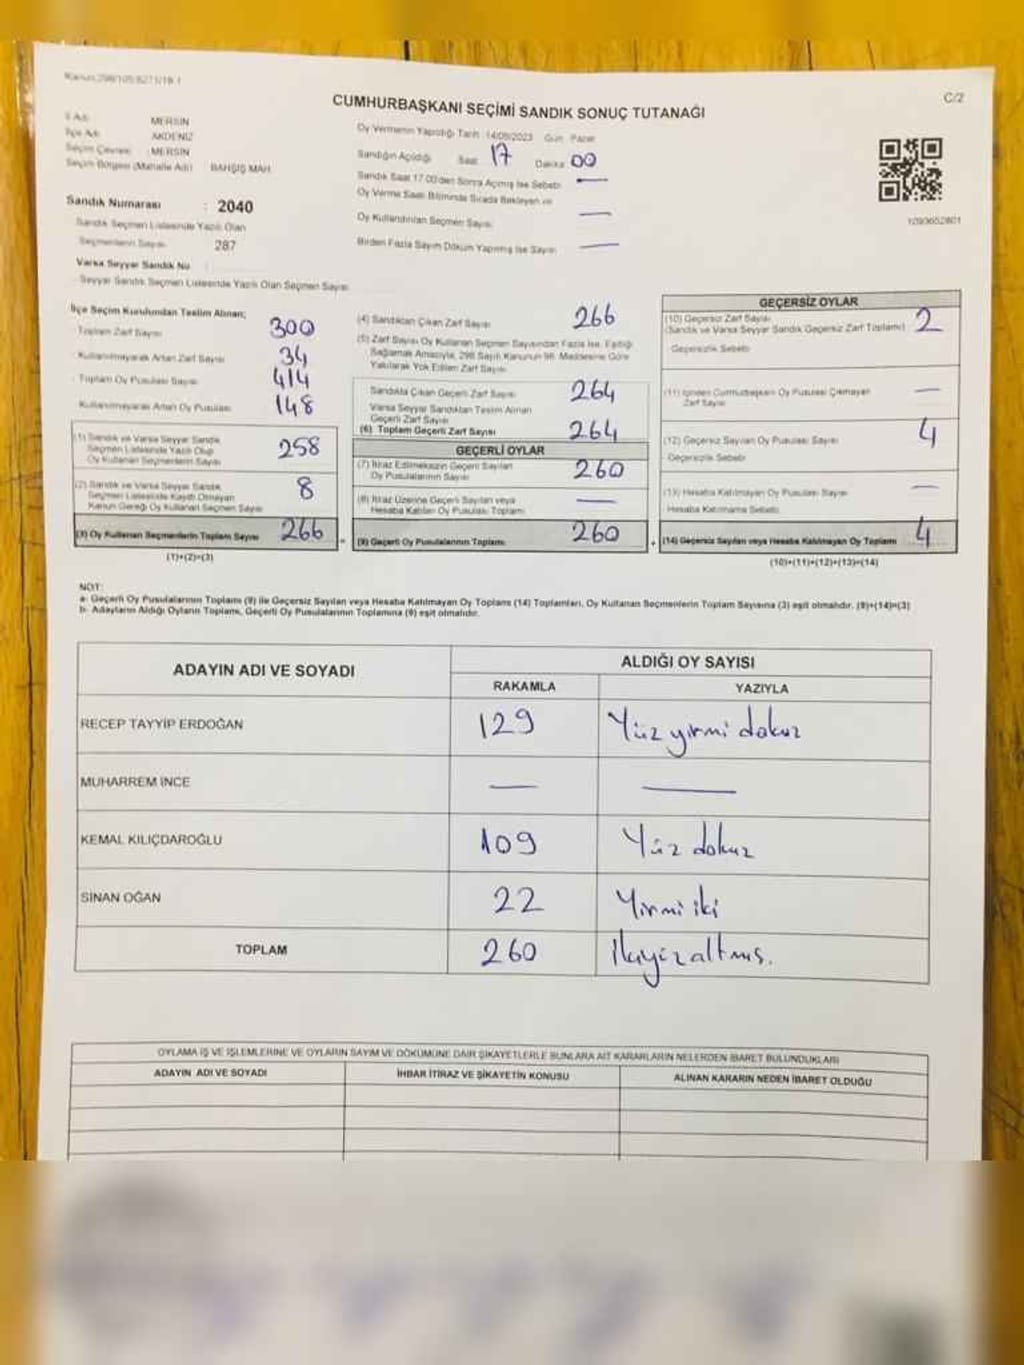 C/2
CUMHURBAŞKANI SEÇİMİ SANDIK SONUÇ TUTANAĞI
İl Adı MERSİN
İlçe Adı AKDENİZ
Seçim Çevresi : MERSİN
Seçim Bölgesi (Mahalle Adı) BAHŞİŞ MAH.
Sandık Numarası : 2040
Sandık Seçmen Listesinde Yazılı Olan
Seçmenlerin Sayısı 287
Varsa Seyyar Sandık No :
Seyyar Sandık Seçmen Listesinde Yazılı Olan Seçmen Sayısı
Oy Vermenin Yapıldığı Tarih : 14/05/2023 Gün : Pazar
Sandığın Açıldığı Saat 17 Dakika 00
Sandık Saat 17.00'den Sonra Açılmış İse Sebebi —
Oy Verme Saati Bitiminde Sırada Bekleyen ve
Oy Kullandırılan Seçmen Sayısı —
Birden Fazla Sayım Döküm Yapılmış İse Sayısı —
1093652801
İlçe Seçim Kurulundan Teslim Alınan;
Toplam Zarf Sayısı 300
Kullanılmayarak Artan Zarf Sayısı 34
Toplam Oy Pusulası Sayısı 414
Kullanılmayarak Artan Oy Pusulası 148
(1) Sandık ve Varsa Seyyar Sandık
Seçmen Listesinde Yazılı Olup
Oy Kullanan Seçmenlerin Sayısı 258
(2) Sandık ve Varsa Seyyar Sandık
Seçmen Listesinde Kaydı Olmayan
Kanun Gereği Oy Kullanan Seçmen Sayısı 8
(3) Oy Kullanan Seçmenlerin Toplam Sayısı 266
(1)+(2)=(3)
(4) Sandıktan Çıkan Zarf Sayısı 266
(5) Zarf Sayısı Oy Kullanan Seçmen Sayısından Fazla İse, Eşitliği
Sağlamak Amacıyla, 298 Sayılı Kanunun 98. Maddesine Göre
Yakılarak Yok Edilen Zarf Sayısı
Sandıkta Çıkan Geçerli Zarf Sayısı 264
Varsa Seyyar Sandıktan Teslim Alınan
Geçerli Zarf Sayısı
(6) Toplam Geçerli Zarf Sayısı 264
GEÇERLİ OYLAR
(7) İtiraz Edilmeksizin Geçerli Sayılan
Oy Pusulalarının Sayısı 260
(8) İtiraz Üzerine Geçerli Sayılan veya
Hesaba Katılan Oy Pusulası Toplamı —
(9) Geçerli Oy Pusulalarının Toplamı 260
GEÇERSİZ OYLAR
(10) Geçersiz Zarf Sayısı
(Sandık ve Varsa Seyyar Sandık Geçersiz Zarf Toplamı) 2
Geçersizlik Sebebi
(11) İçinden Cumhurbaşkanı Oy Pusulası Çıkmayan
Zarf Sayısı —
(12) Geçersiz Sayılan Oy Pusulası Sayısı 4
Geçersizlik Sebebi
(13) Hesaba Katılmayan Oy Pusulası Sayısı —
Hesaba Katılmama Sebebi
(14) Geçersiz Sayılan veya Hesaba Katılmayan Oy Toplamı 4
(10)+(11)+(12)+(13)=(14)
NOT:
a- Geçerli Oy Pusulalarının Toplamı (9) ile Geçersiz Sayılan veya Hesaba Katılmayan Oy Toplamı (14) Toplamları, Oy Kullanan Seçmenlerin Toplam Sayısına (3) eşit olmalıdır. (9)+(14)=(3)
b- Adayların Aldığı Oyların Toplamı, Geçerli Oy Pusulalarının Toplamına (9) eşit olmalıdır.
ADAYIN ADI VE SOYADI ALDIĞI OY SAYISI
RAKAMLA YAZIYLA
RECEP TAYYİP ERDOĞAN 129 Yüz yirmi dokuz
MUHARREM İNCE — —
KEMAL KILIÇDAROĞLU 109 Yüz dokuz
SİNAN OĞAN 22 Yirmi iki
TOPLAM 260 İkiyüzaltmış.
OYLAMA İŞ VE İŞLEMLERİNE VE OYLARIN SAYIM VE DÖKÜMÜNE DAİR ŞİKAYETLERLE BUNLARA AİT KARARLARIN NELERDEN İBARET BULUNDUKLARI
ADAYIN ADI VE SOYADI İHBAR İTİRAZ VE ŞİKAYETİN KONUSU ALINAN KARARIN NEDEN İBARET OLDUĞU